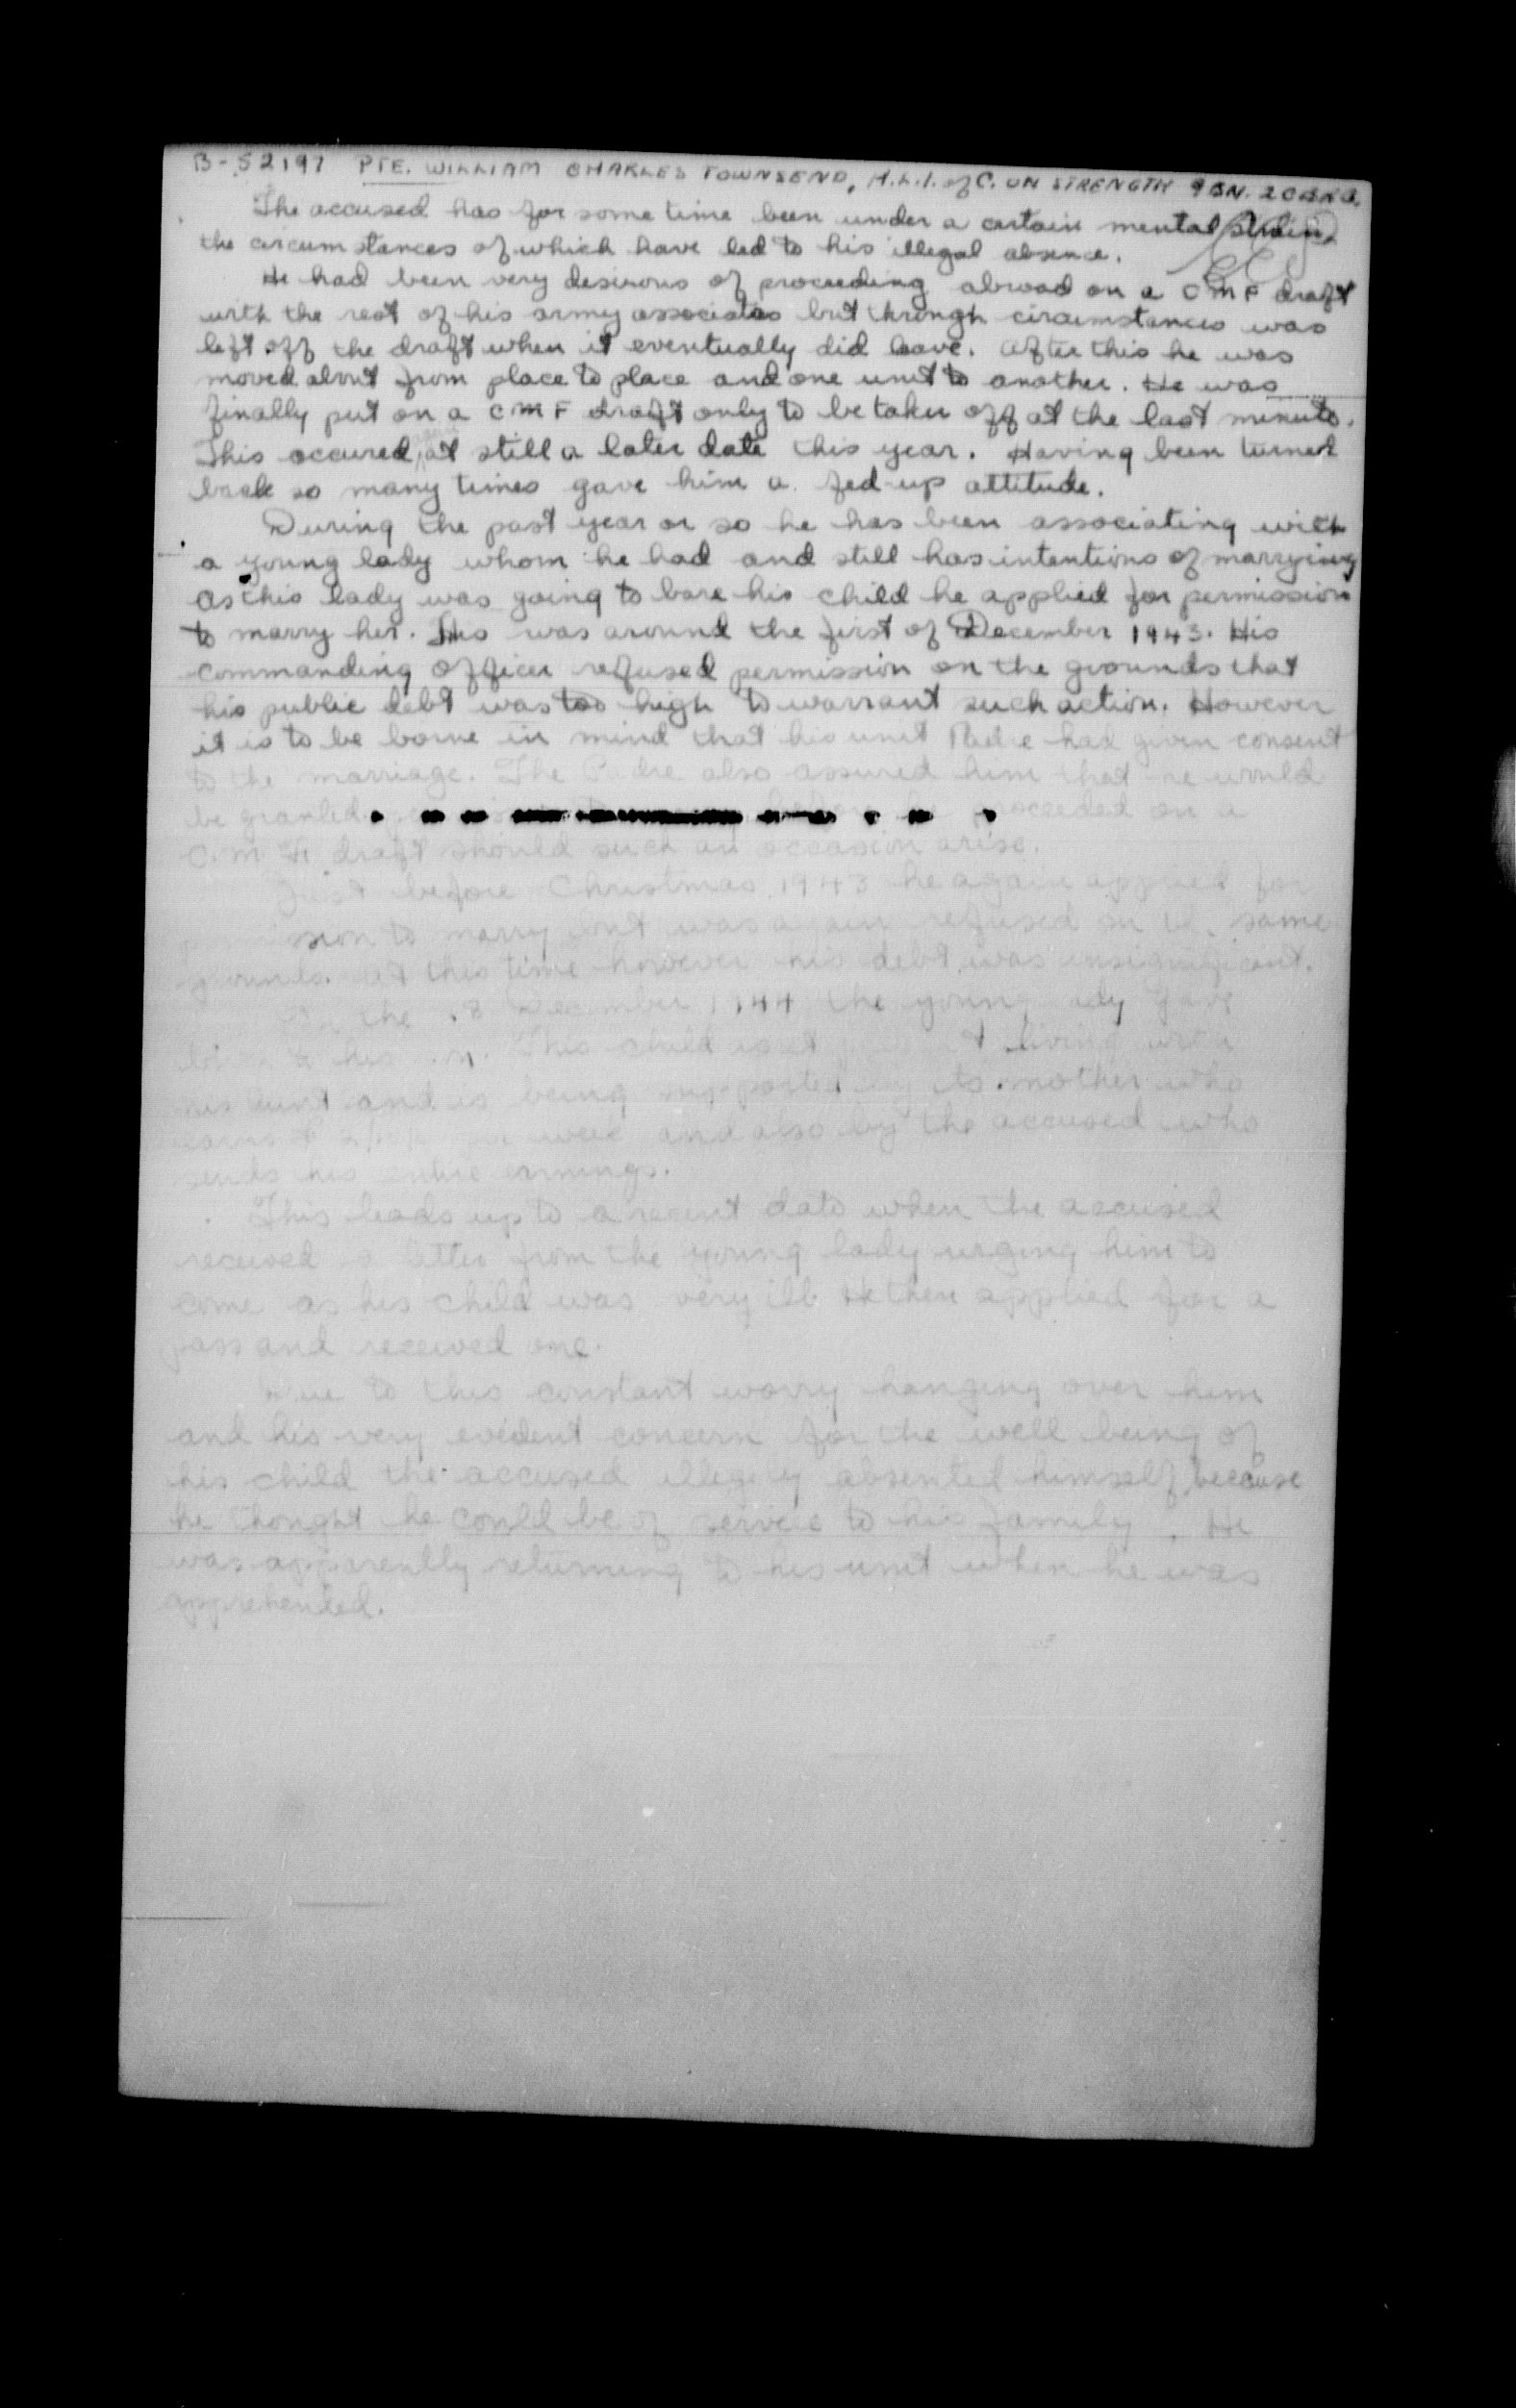 B-52197 PTE. WILLIAM CHARLES TOWNSEND, H.L.I. of C. ON STRENGTH 9 BN. 2 CBRG.
The accused has for some time been under a certain mental strain
the circumstances of which have led to his illegal absence.
He had been very desirous of proceeding abroad on a CMF draft
with the rest of his army associates but through circumstances was
left off the draft when it eventually did leave. After this he was
moved about from place to place and one unit to another. He was
finally put on a CMF draft only to be taken off at the last minute.
This occured at still a later date this year. Having been turned
back so many times gave him a fed-up attitude.
During the past year or so he has been associating with
a young lady whom he had and still has intentions of marrying
As this lady was going to bare his child he applied for permission
to marry her. This was around the first of December 1943. His
commanding officer refused permission on the grounds that
his public debt was too high to warrant such action. However
it is to be borne in mind that his unit Padre had given consent
to the marriage. The Padre also assured him that he would
be granted before he proceeded on a
C.M.F. draft should such an occasion arise.
Just before Christmas 1943 he again applied for
permission to marry but was again refused on the same
grounds. At this time however his debt was insignificant.
the December 1944 the young lady gave
his This child living with
his aunt and is being supported by its mother who
earns per week and also by the accused who
sends his entire earnings.
This leads up to a recent date when the accused
received a letter from the young lady urging him to
come as his child was very ill. He then applied for a
pass and received one.
Due to this constant worry hanging over him
and his very evident concern for the well being of
his child the accused illegally absented himself because
he thought he could be of service to his family. He
was apparently returning to his unit when he was
apprehended.